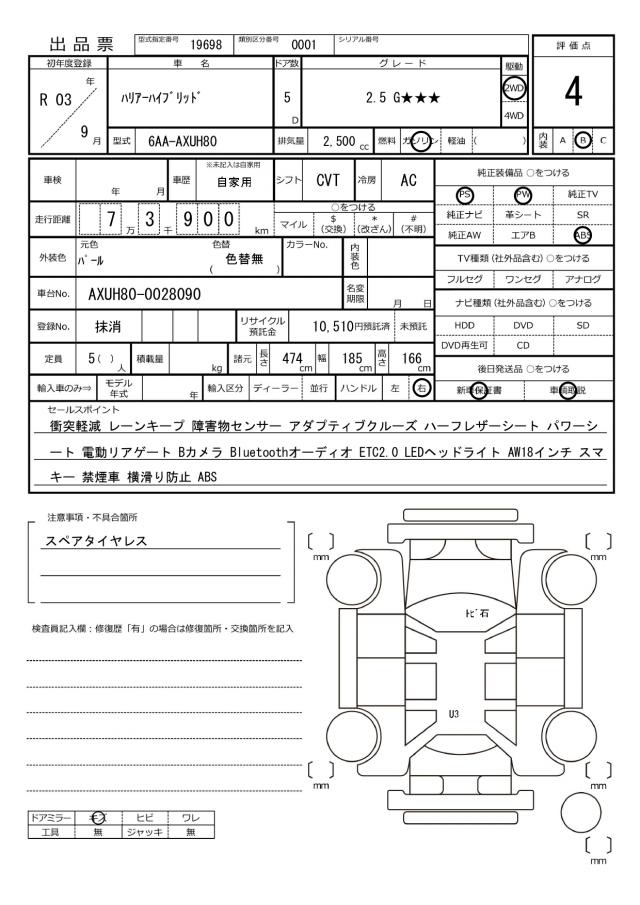 出品票 型式指定番号 19698 類別区分番号 0001 シリアル番号
評価点
4
内装 A B C
初年度登録 車名 ドア数 グレード 駆動
R 03 年 9 月
ハリアーハイブリッド 5 D 2.5 G★★★ 2WD
4WD
型式 6AA-AXUH80 排気量 2,500 cc 燃料 ガソリン 軽油 ( )
車検 年 月 車歴 ※未記入は自家用 自家用 シフト CVT 冷房 AC
走行距離 7 万 3 千 9 0 0 km
○をつける
マイル $(交換) *(改ざん) #(不明)
外装色 元色 パール 色替 ( 色替無 ) カラーNo. 内装色
車台No. AXUH80-0028090 名変期限 月 日
登録No. 抹消 リサイクル預託金 10,510円預託済 未預託
定員 5 ( ) 人 積載量 kg 諸元 長さ 474 cm 幅 185 cm 高さ 166 cm
輸入車のみ⇒ モデル年式 年 輸入区分 ディーラー 並行 ハンドル 左 右
純正装備品 ○をつける
PS PW 純正TV
純正ナビ 革シート SR
純正AW エアB ABS
TV種類 (社外品含む) ○をつける
フルセグ ワンセグ アナログ
ナビ種類 (社外品含む) ○をつける
HDD DVD SD
DVD再生可 CD
後日発送品 ○をつける
新車保証書 車輌取説
セールスポイント
衝突軽減 レーンキープ 障害物センサー アダプティブクルーズ ハーフレザーシート パワーシ
ート 電動リアゲート Bカメラ Bluetoothオーディオ ETC2.0 LEDヘッドライト AW18インチ スマ
キー 禁煙車 横滑り防止 ABS
注意事項・不具合箇所
スペアタイヤレス
検査員記入欄：修復歴「有」の場合は修復箇所・交換箇所を記入
ドアミラー キズ ヒビ ワレ
工具 無 ジャッキ 無
〔 〕mm
〔 〕mm
トビ石
U3
〔 〕mm
〔 〕mm
〔 〕mm